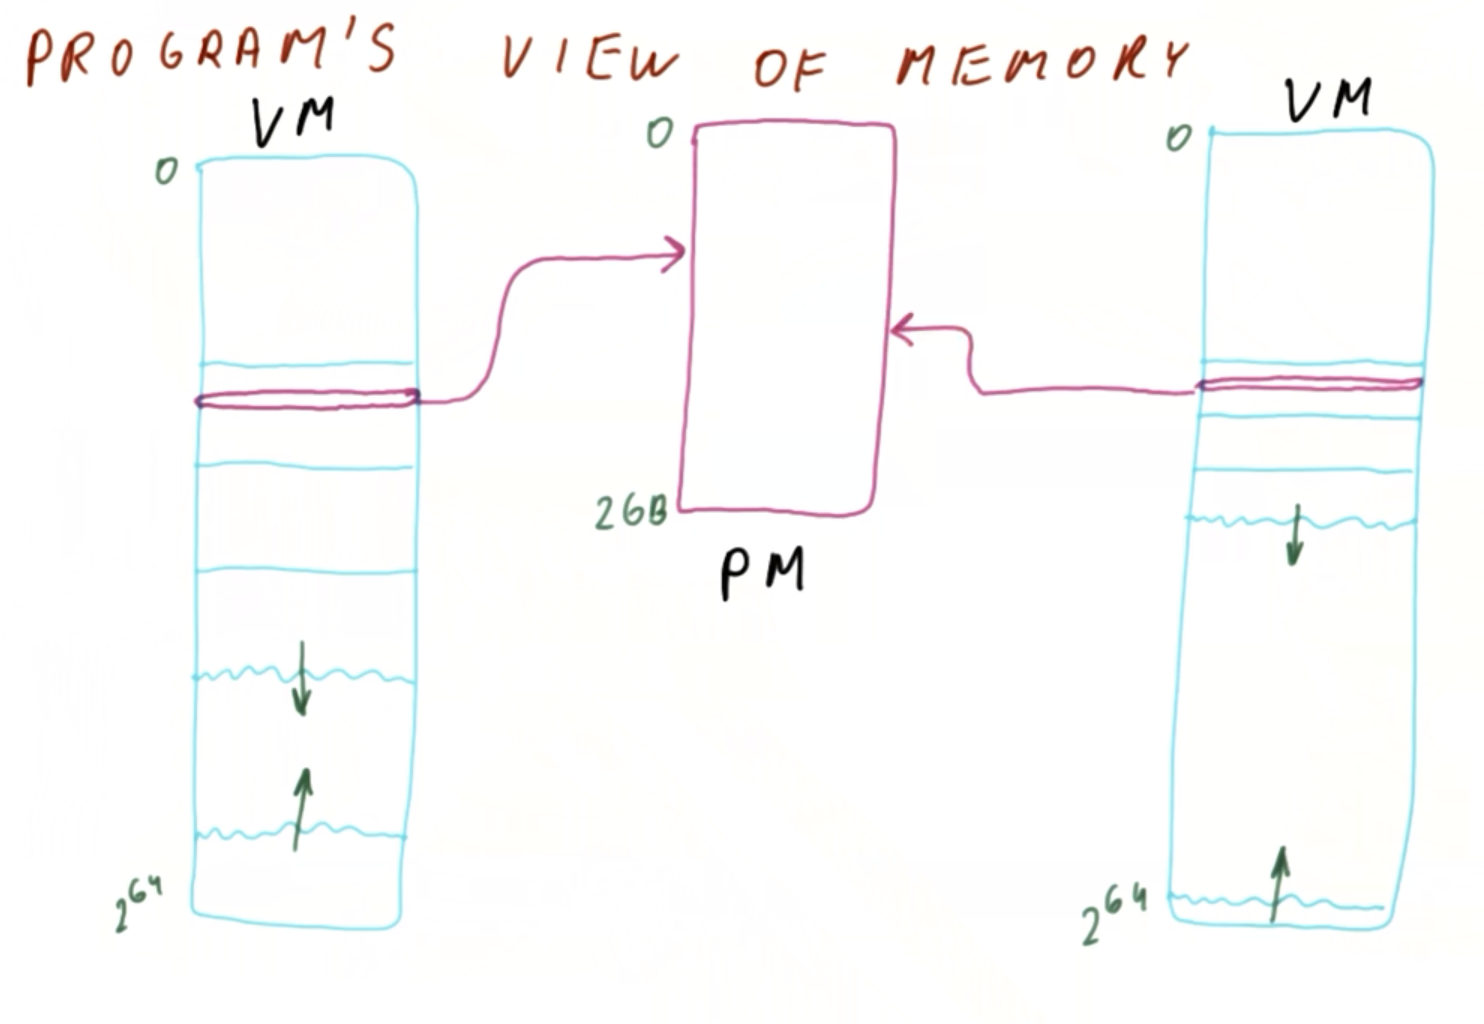 PROGRAM'S VIEW OF MEMORY
VM
0
2^64
0
2GB
PM
VM
0
2^64